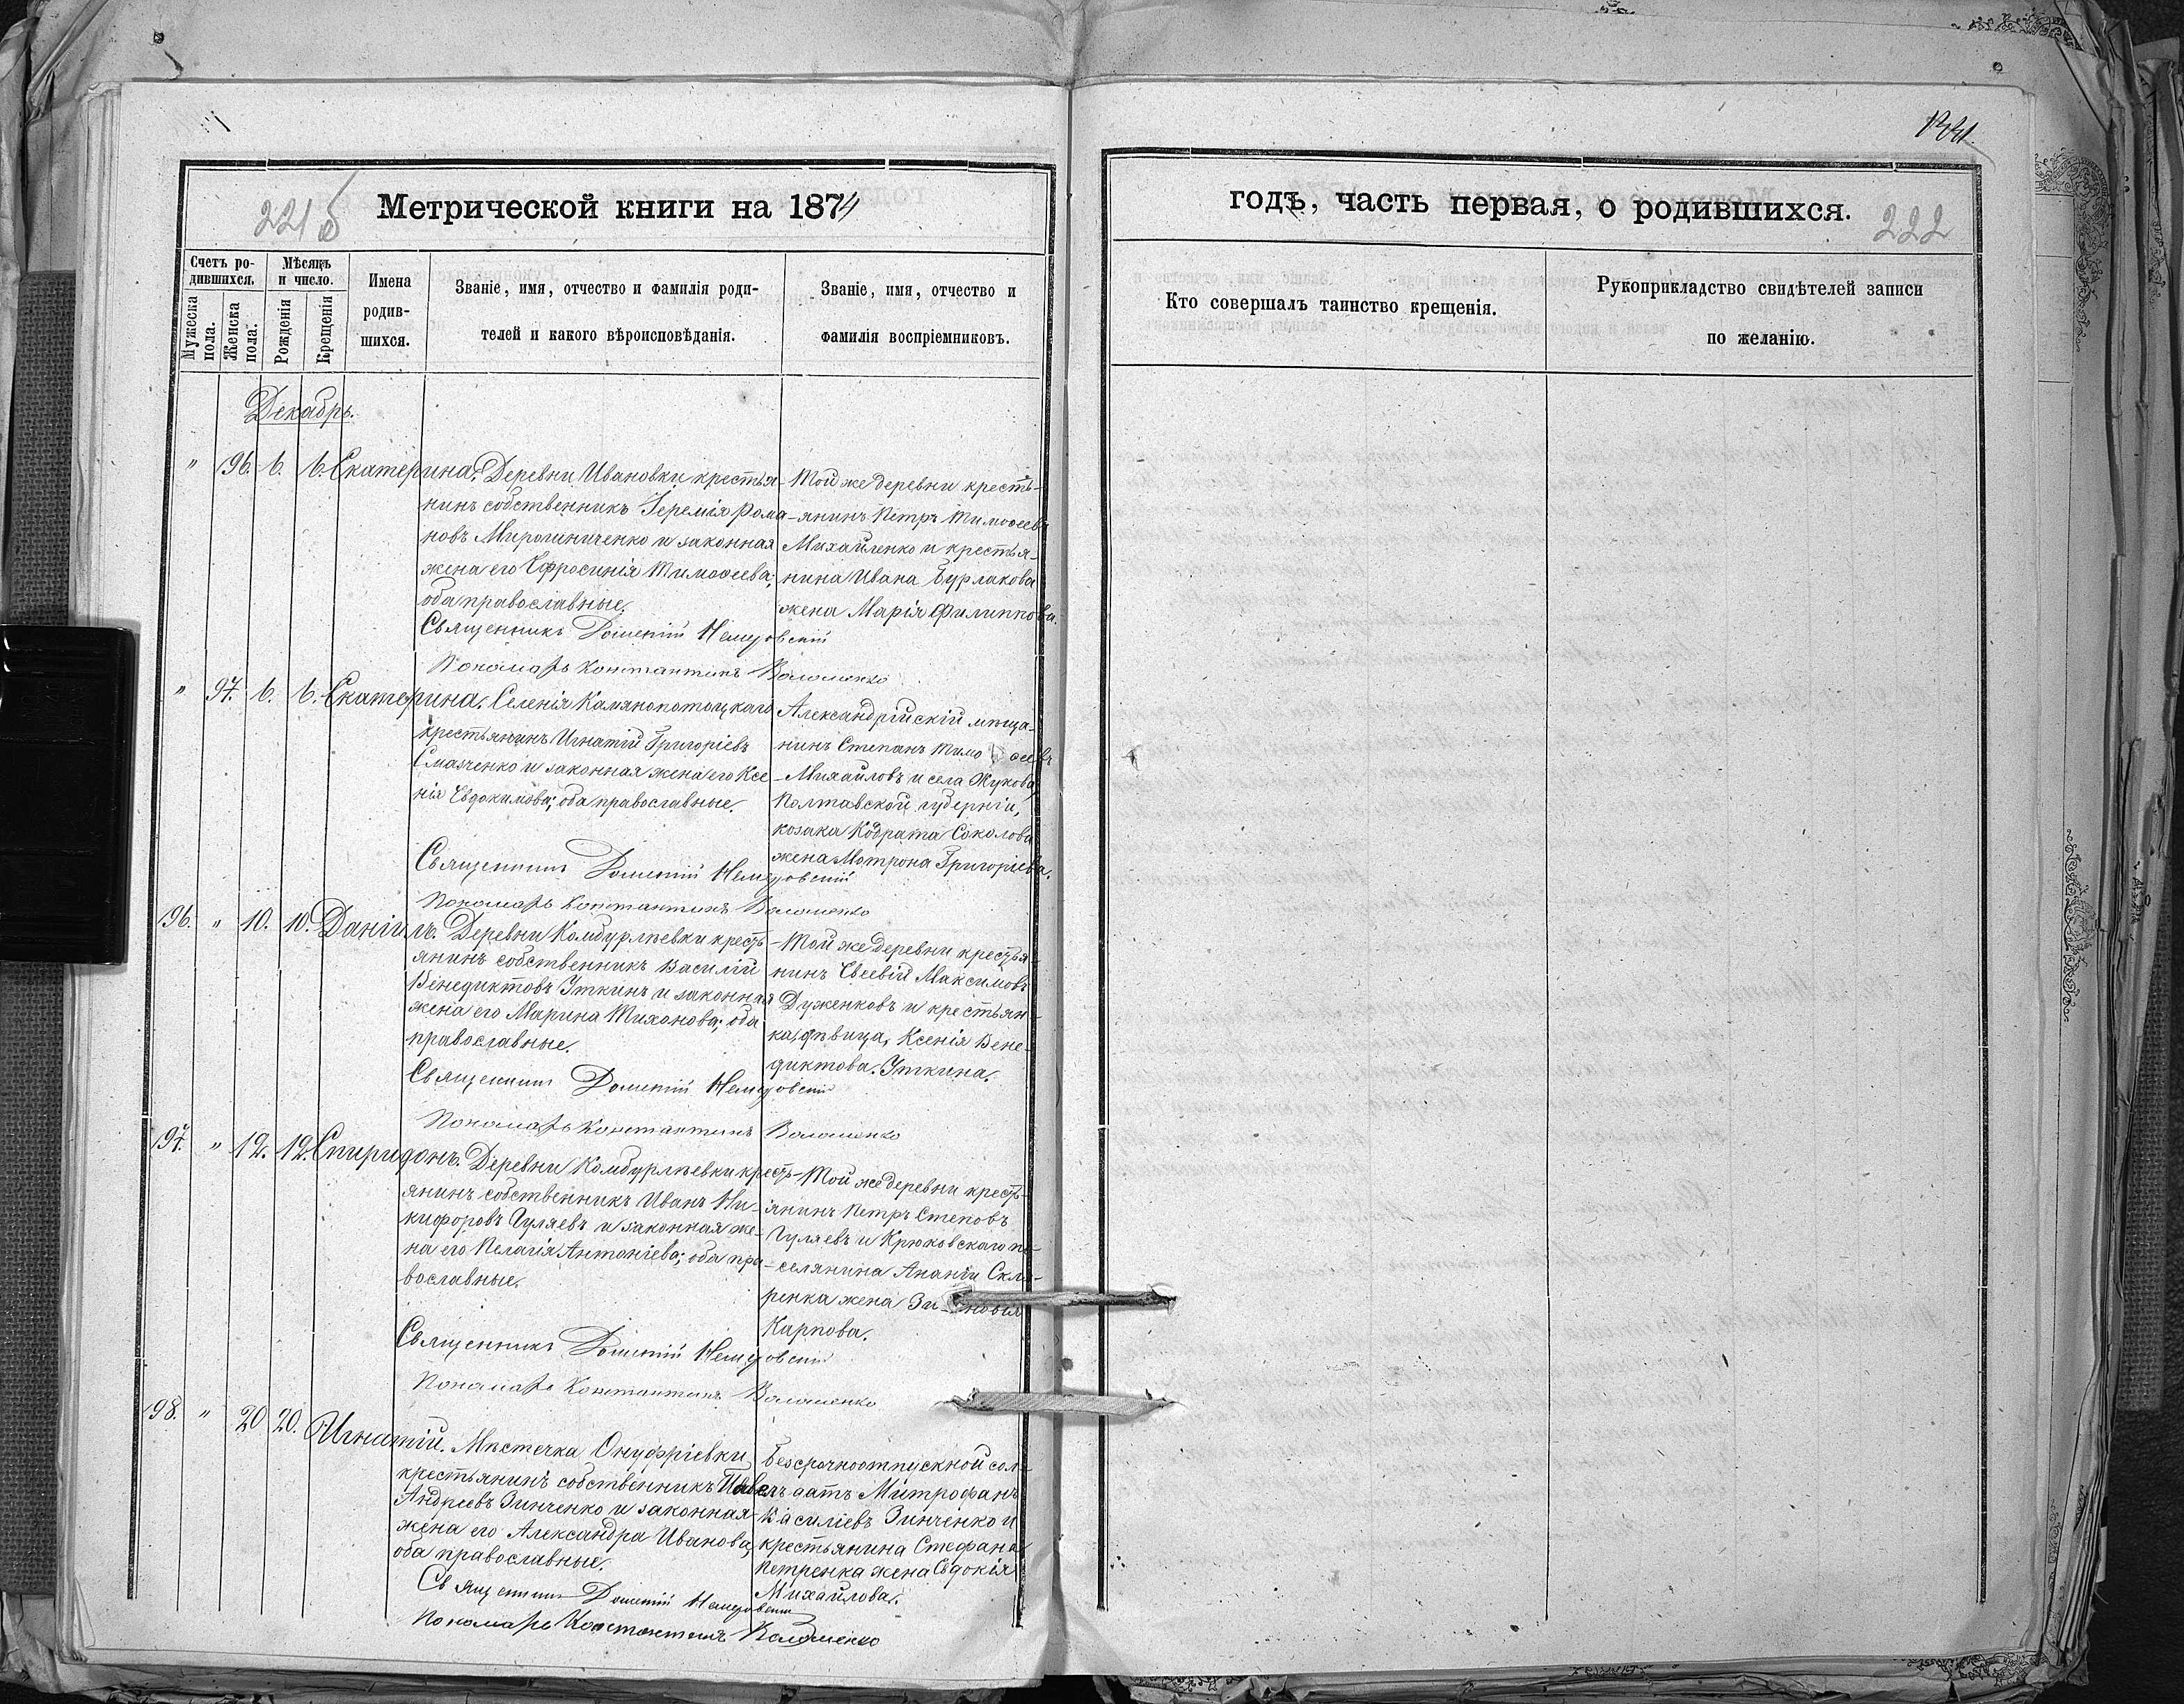 221 б
Метрической книги на 1874
годъ, часть первая, о родившихся.
222
Счетъ ро-
дившихся.
Мѣсяцъ
и число.
Мужеска
пола.
Женска
пола.
Рожденія
Крещенія
Имена
родив-
шихся.
Званіе, имя, отчество и фамилія роди-
телей и какого вѣроисповѣданія.
Званіе, имя, отчество и
фамилія воспріемниковъ.
Кто совершалъ таинство крещенія.
Рукоприкладство свидѣтелей записи
по желанію.
Декабрь.
" 96. 6. 6. Екатерина.
Деревни Ивановки крестья-
нинъ собственникъ Іеремія Рома-
новъ Мирошниченко и законная
жена его Ефросинія Тимоѳеева;
оба православные.
Той же деревни кресть-
янинъ Петръ Тимоѳеевъ
Михайленко и крестья-
нина Ивана Бурлакова
жена Марія Филиппова.
Священникъ Дометій
Пономарь Константинъ
" 97. 6. 6. Екатерина.
Селенія Камянопотоцкаго
крестьянинъ Игнатій Григоріевъ
и законная жена его Ксе-
нія Евдокимова; оба православные.
Александрійскій мѣща-
нинъ Степанъ Тимоѳеевъ
Михайловъ и села Жукова
Полтавской губерніи,
козака Кодрата Соколова
жена Мотрона Григоріева.
Священникъ Дометій
Пономарь Константинъ
96. " 10. 10. Даніилъ.
Деревни Камбурлѣевки кресть-
янинъ собственникъ Василій
Венедиктовъ Уткинъ и законная
жена его Марина Тихонова; оба
православные.
Той же деревни крестья-
нинъ Евсевій Максимовъ
Дуженковъ и крестьян-
ка, дѣвица, Ксенія Вене-
диктова Уткина.
Священникъ Дометій
Пономарь Константинъ
97. " 12. 12. Спиридонъ.
Деревни Камбурлѣевки кресть-
янинъ собственникъ Иванъ Ни-
кифоровъ Гуляевъ и законная же-
на его Пелагія Антоніева; оба пра-
вославные.
Той же деревни кресть-
янинъ Петръ Степовъ
Гуляевъ и Крюковскаго по-
селянина Ананіи Скля-
ренка жена Зиновія
Карпова.
Священникъ Дометій
Пономарь Константинъ
98. " 20 20. Игнатій.
Мѣстечка Онуфріевки
крестьянинъ собственникъ Павелъ
Андреевъ Зинченко и законная
жена его Александра Иванова,
оба православные.
Безсрочноотпускной сол-
датъ Митрофанъ
Василіевъ Зинченко и
крестьянина Стефана
Петренка жена Евдокія
Михайлова.
Священникъ Дометій
Пономарь Константинъ